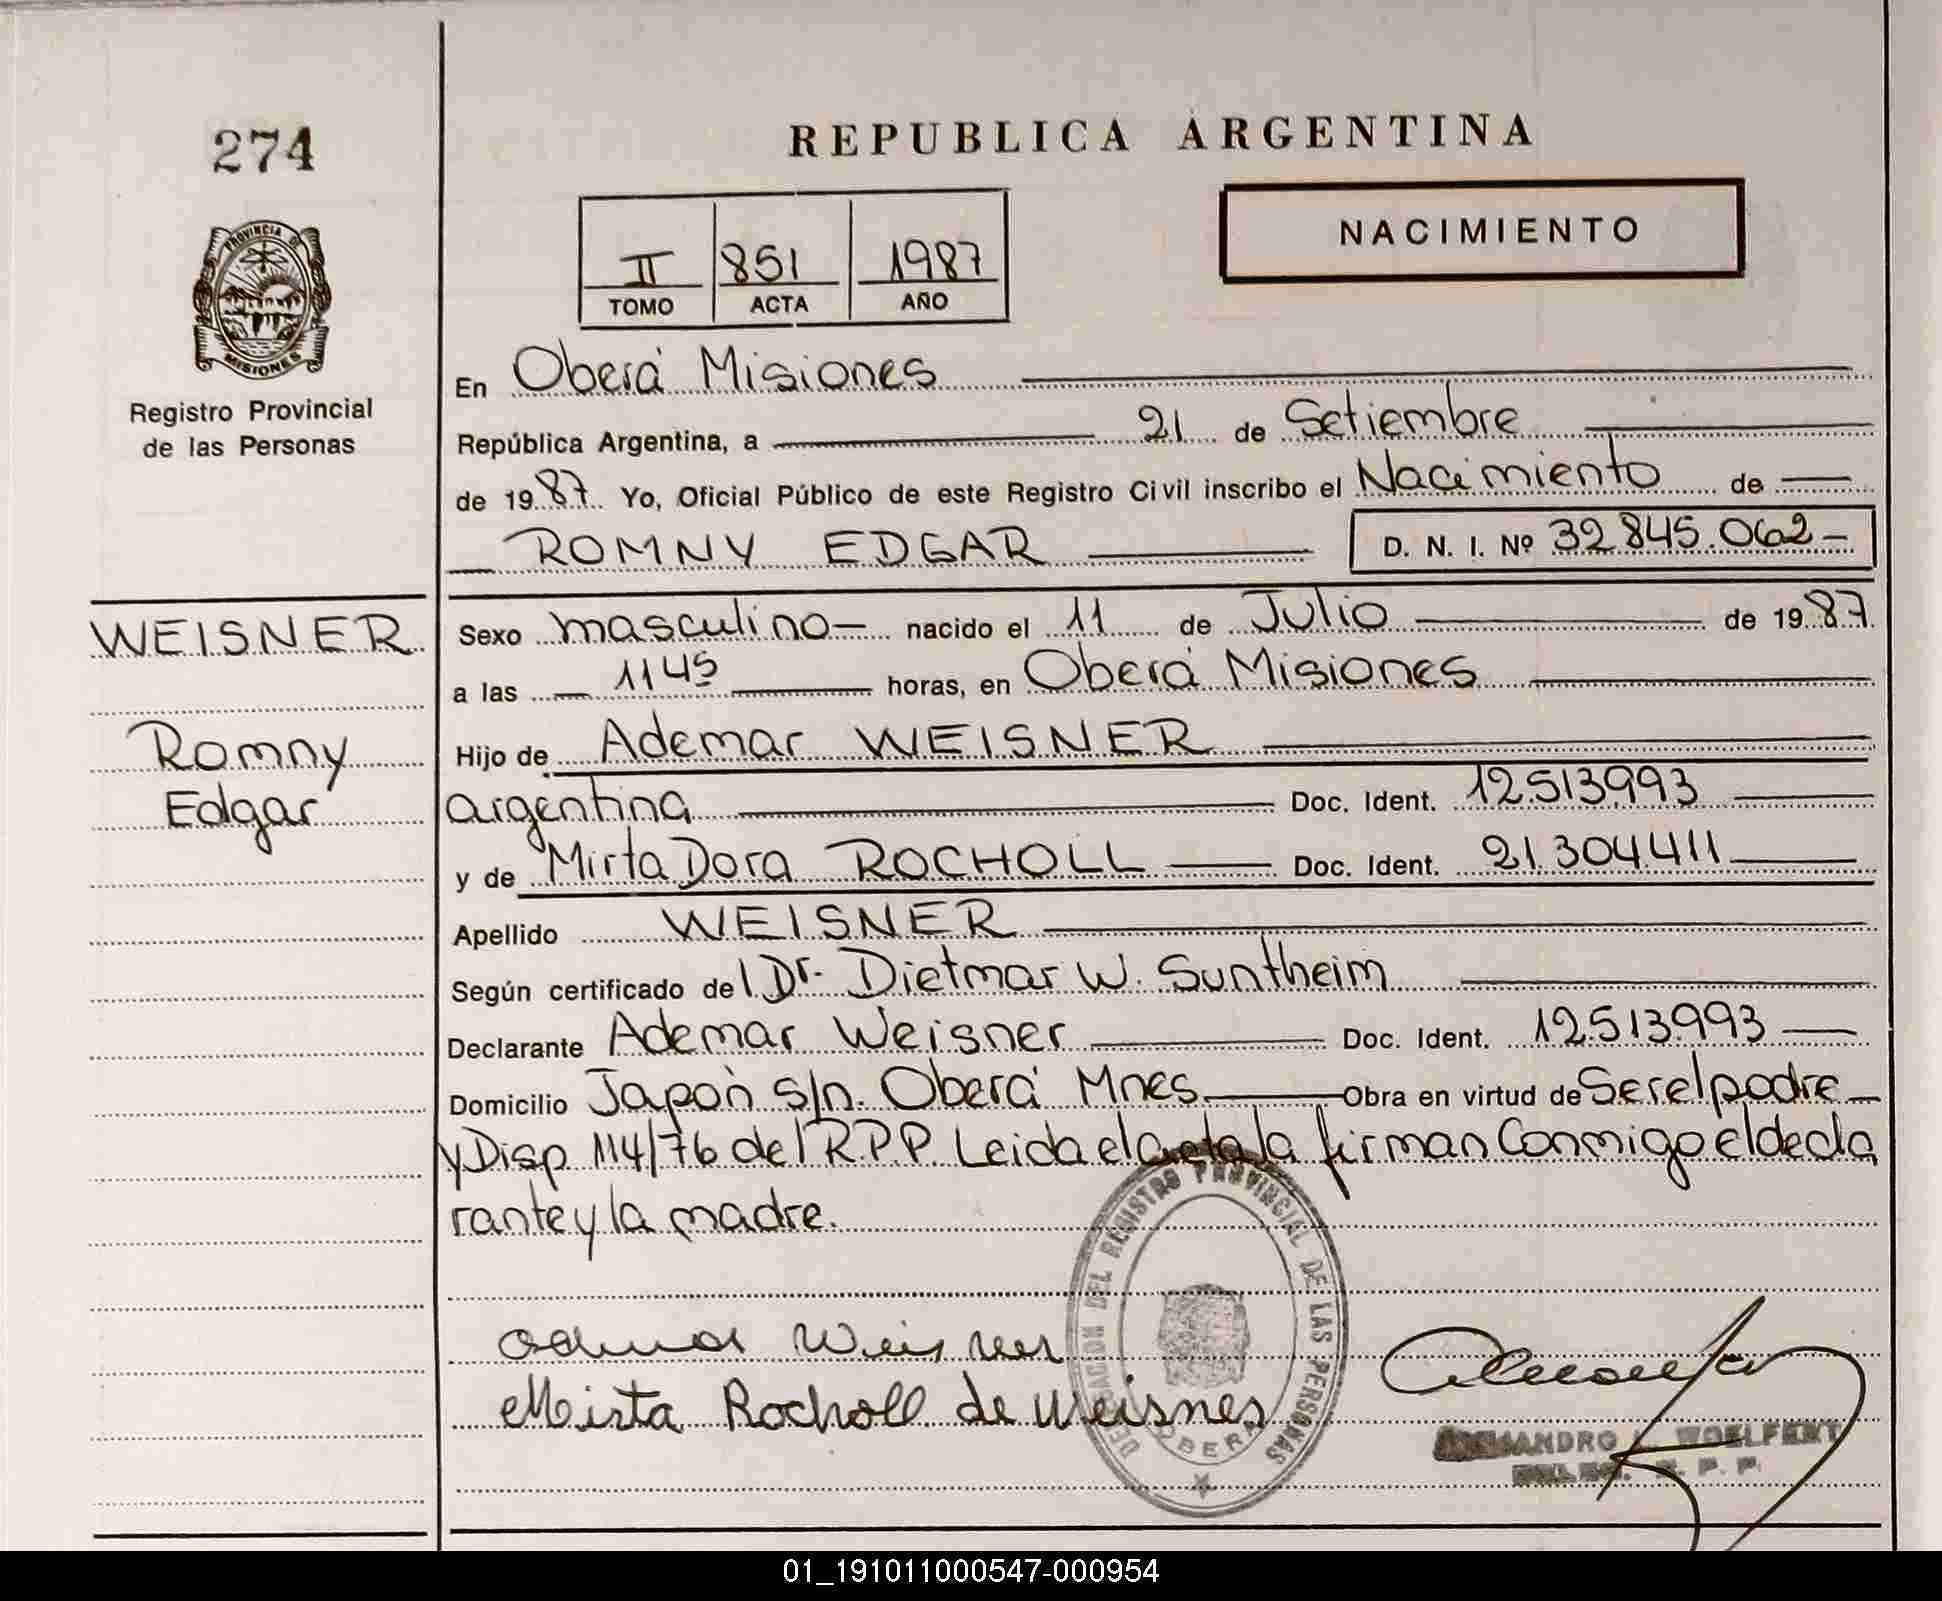 274
PROVINCIA DE
MISIONES
Registro Provincial
de las Personas
WEISNER
Romny
Edgar
REPUBLICA ARGENTINA
NACIMIENTO
II 851 1987
TOMO ACTA AÑO
En Oberá Misiones
República Argentina, a 21 de Setiembre
de 1987. Yo, Oficial Público de este Registro Civil inscribo el Nacimiento de
ROMNY EDGAR D. N. I. Nº 32.845.062
Sexo masculino nacido el 11 de Julio de 1987.
a las 1145 horas, en Oberá Misiones
Hijo de Ademar WEISNER
argentina Doc. Ident. 12.513.993
y de Mirta Dora ROCHOLL Doc. Ident. 21.304.411
Apellido WEISNER
Según certificado del Dr. Dietmar W. Suntheim
Declarante Ademar Weisner Doc. Ident. 12.513.993
Domicilio Japón s/n. Oberá Mnes. Obra en virtud de Ser el padre
y Disp 114/76 del R.P.P. Leida el acta la firman Conmigo el decla
rante y la madre.
DELEGACION DEL REGISTRO PROVINCIAL DE LAS PERSONAS
OBERA
Ademar Weisner
Mirta Rocholl de Weisner
WOELFERT
R. P. P.
01_191011000547-000954